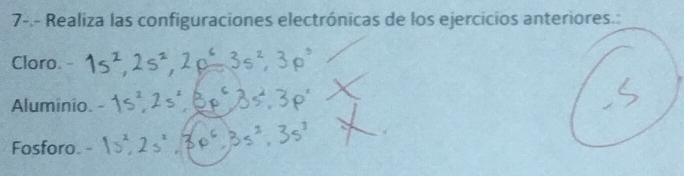 7-.- Realiza las configuraciones electrónicas de los ejercicios anteriores.:
Cloro. - 1s², 2s², 2p⁶ 3s², 3p⁵
Aluminio. - 1s², 2s², 3p⁶, 3s², 3p¹
.5
Fosforo. - 1s², 2s², 3p⁶, 3s², 3s³